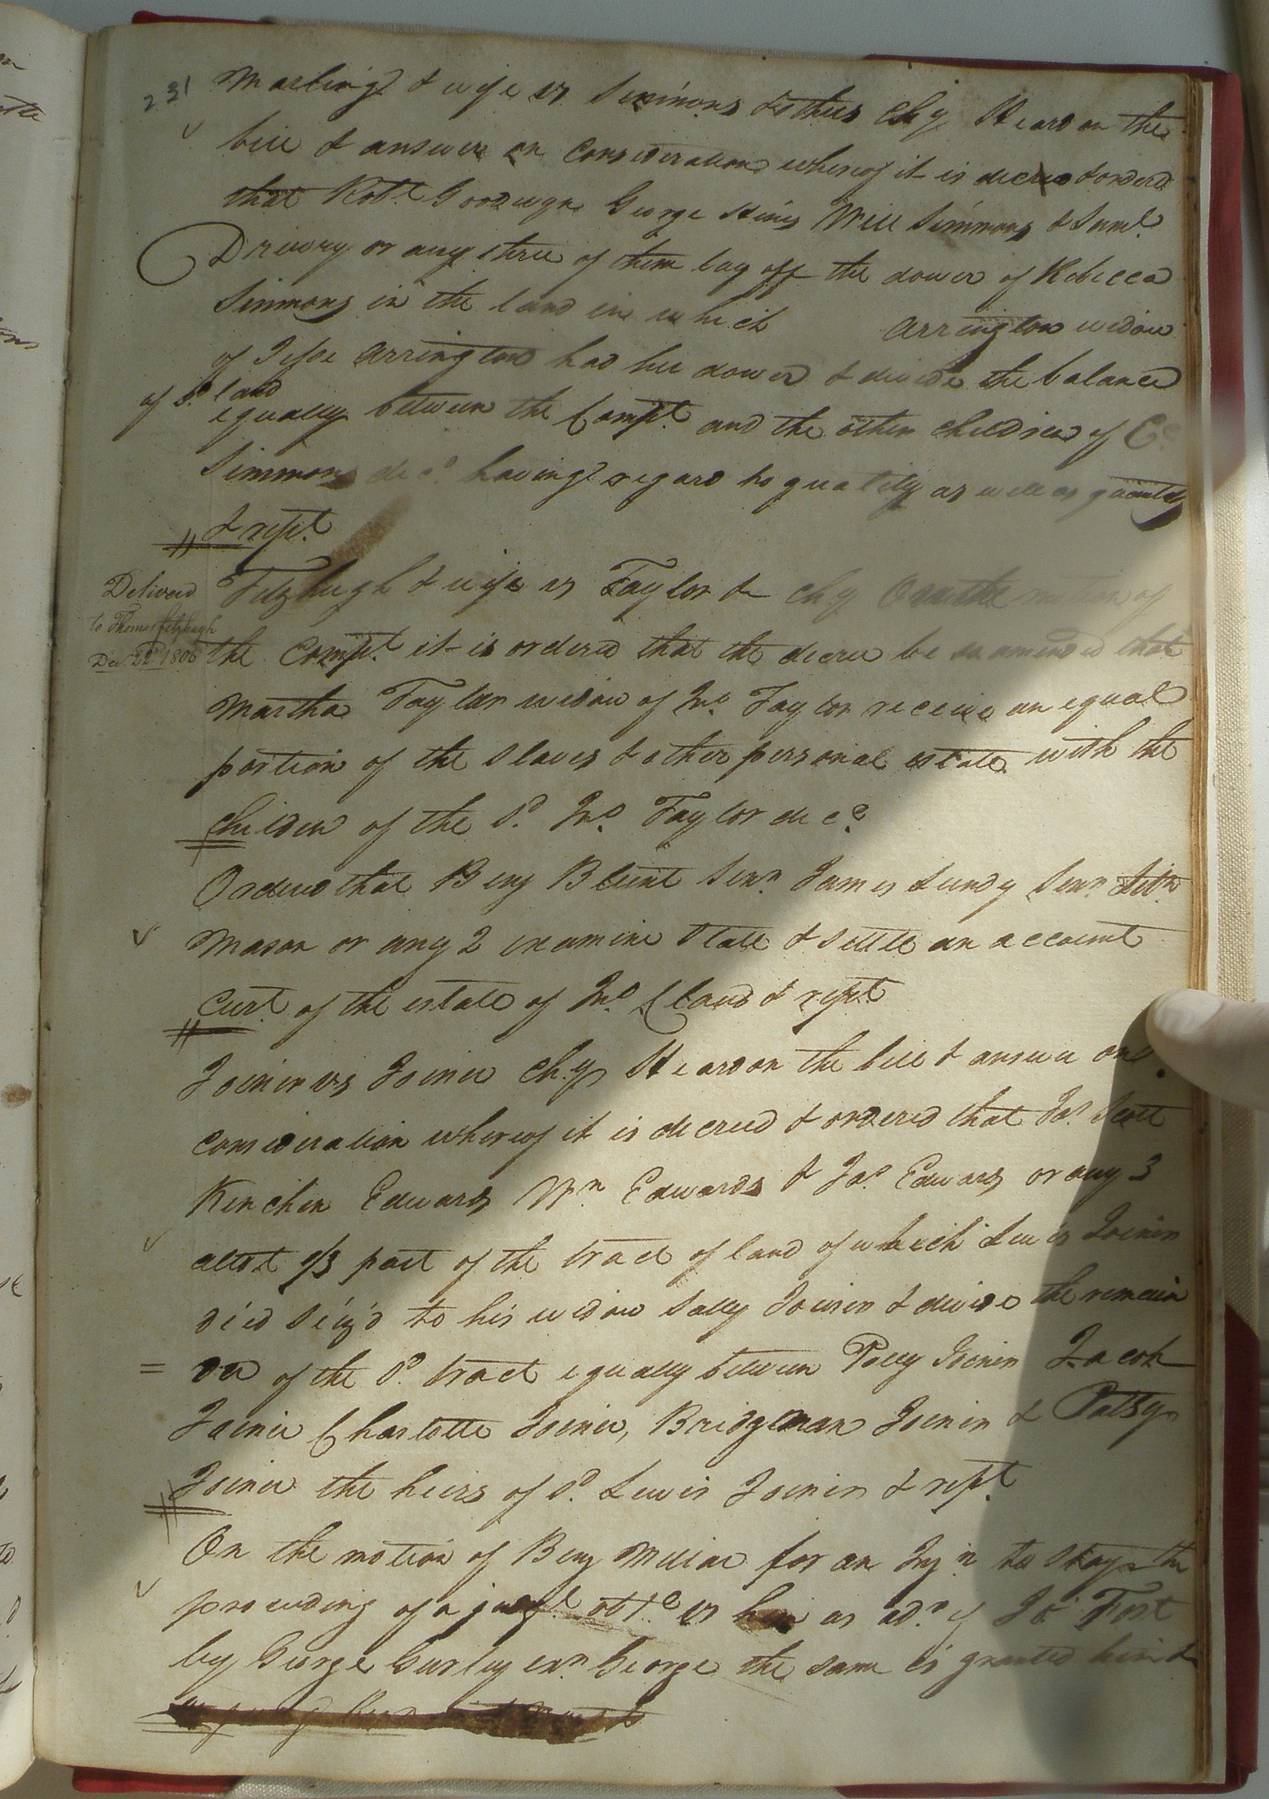 231
Marling & wife vs Simmons & others Chy Heard on the
bill & answer on consideration whereof it is decreed & ordered
that Robt. Goodwyn George Hines Will Simmons & Saml.
Drewry or any three of them lay off the dower of Rebecca
Simmons in the land in which Arrington widow
of Jesse Arrington had her dower & divide the balance
of sd. land
equally between the Compt. and the other children of
Simmons decd. having regard to quality as well as quantity
& rept.
Fitzhugh & wife vs Taylor & Chy On the motion of
Deliverd
to Thomas Fitzhugh
Decr. 22d 1806
the Compt. it is ordered that the decree be so amended that
Martha Taylor widow of Jno. Taylor receive an equal
portion of the slaves & other personal estate with the
children of the sd. Jno. Taylor decd.
Ordered that Benj Blunt Senr. James Lundy Senr.
Mason or any 2 examine State & settle an account
Curt. of the estate of Jno. Claud & rept.
Joiner vs Joiner Chy Heard on the bill & answer on
consideration whereof it is decreed & ordered that Jas. Scott
Kinchen Edwards Wm Edwards & Jas. Edwards or any 3
allot 1/3 part of the tract of land of which Lewis Joiner
died seiz'd to his widow Sally Joiner & divide the remain
= der of the sd. tract equally between Polly Joiner Jacob
Joiner Charlotte Joiner, Bridgeman Joiner & Patsy
Joiner the heirs of sd. Lewis Joiner & rept.
On the motion of Benj for an Injn to stay the
proceeding of a judgt. obtd vs him as adr. of Jo Fort
by George Gurley exr. George the same is granted him